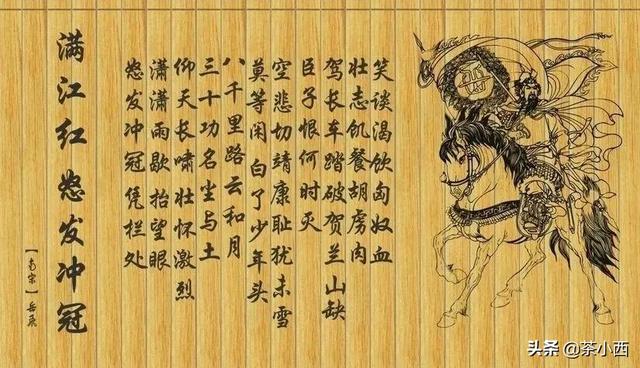 满江红 怒发冲冠
【南宋】岳飞
怒发冲冠凭栏处
潇潇雨歇抬望眼
仰天长啸壮怀激烈
三十功名尘与土
八千里路云和月
莫等闲白了少年头
空悲切靖康耻犹未雪
臣子恨何时灭
驾长车踏破贺兰山缺
壮志饥餐胡虏肉
笑谈渴饮匈奴血
头条 @茶小西